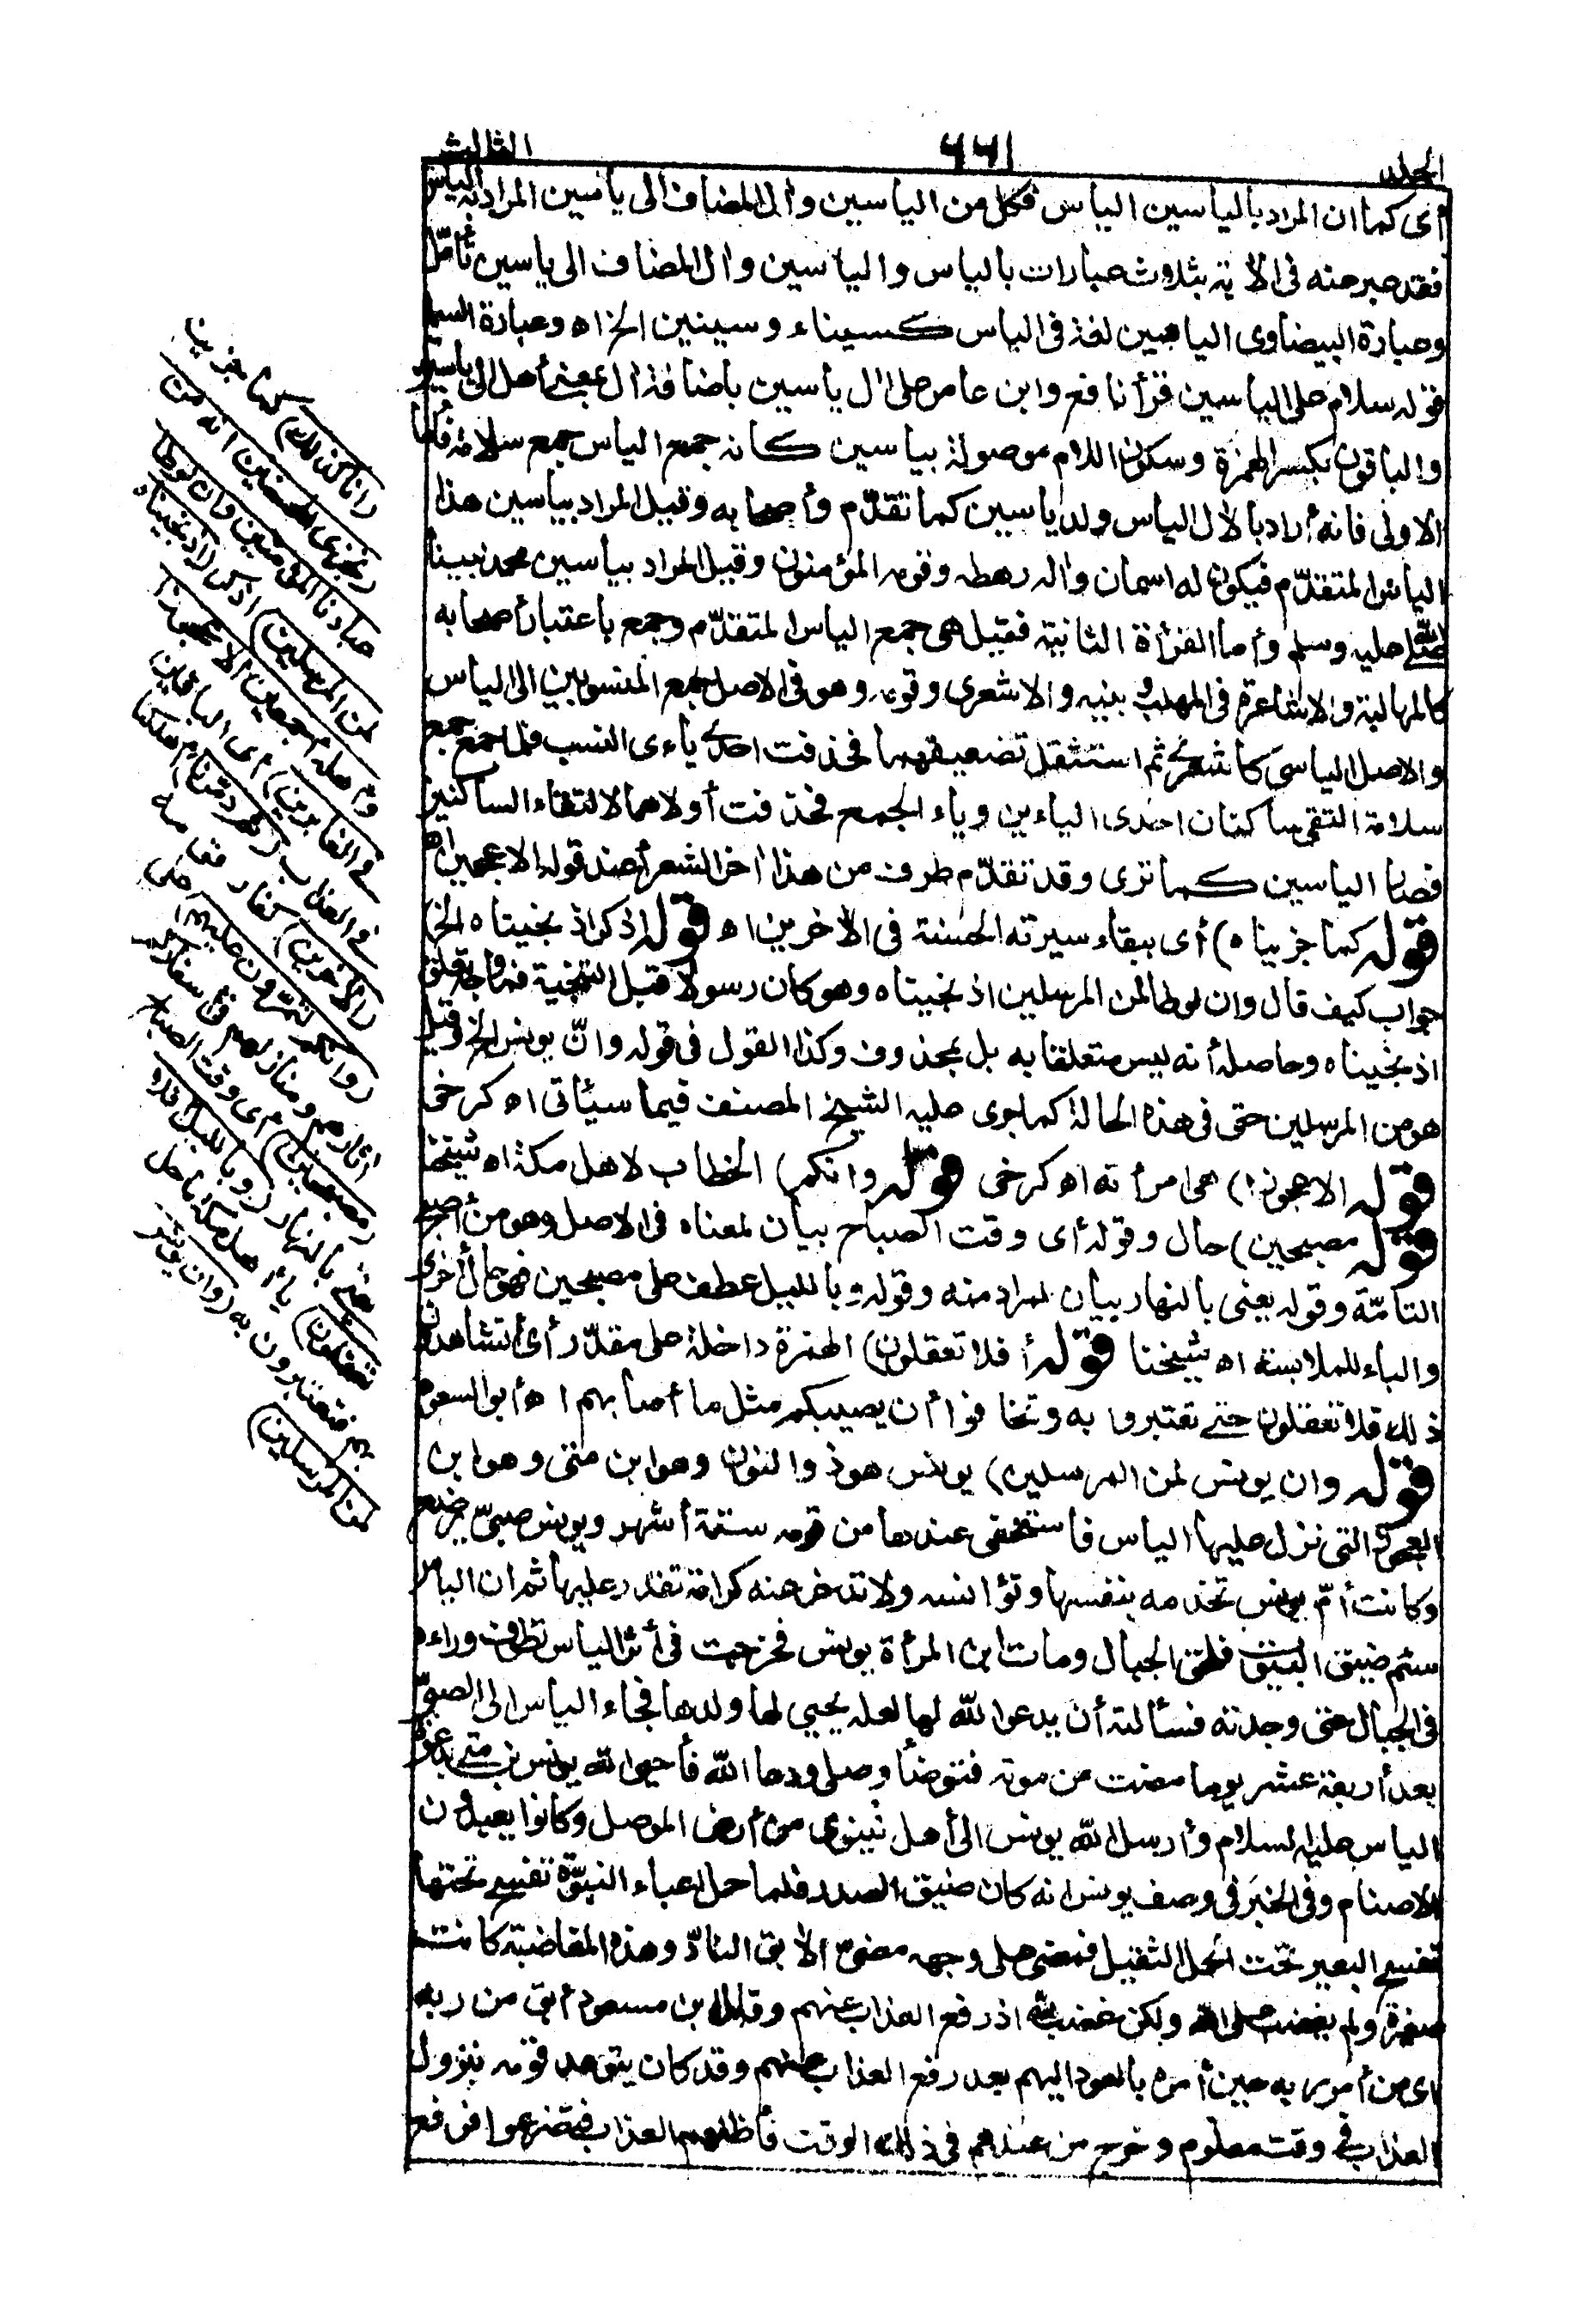 الجلد
٦٦١
الثالث
أى كما ان المراد بالياسين الياس فكل من الياسين وأل المضاف الى ياسين المراد به الياس
فقد عبر عنه فى الآية بثلاث عبارات بالياس والياسين وال المضاف الى ياسين تأمّل
وعبارة البيضاوى الياسين لغة فى الياس كسيناء وسينين الخ اه وعبارة السمين
قوله سلام على الياسين قرأ نافع وابن عامر على ال ياسين باضافة ال بمعنى أهل الى ياسين
والباقون بكسر الهمزة وسكون اللام موصولة بياسين كانه جمع الياس جمع سلامة فأما
الاولى فانه أراد بالآل الياس ولد ياسين كما تقدّم وأصحابه وقيل المراد بياسين هذا
الياس المتقدّم فيكون له اسمان واله رهطه وقومه المؤمنون وقيل المراد بياسين محمد نبينا
صلى الله عليه وسلم وأما القرأة الثانية فقيل هى جمع الياس المتقدّم وجمع باعتبار أصحابه
كالمهالبة والاشاعرة فى المهلب وبنيه والاشعرى وقومه وهو فى الاصل جمع المنسوبين الى الياس
والاصل الياسى كأشعرى ثم استثقل تضعيفهما فحذفت احدى ياءى النسب فلما جمع جمع
سلامة التقى ساكنان احدى الياءين وياء الجمع فحذفت أولاهما لالتقاء الساكنين
فصار الياسين كما ترى وقد تقدّم طرف من هذا اخر الشعراء عند قوله الاعجمين اه
قوله كما جزيناه) أى ببقاء سيرته الحسنة فى الآخرين اه قوله اذكر اذ نجيناه الخ)
جواب كيف قال وان لوطا لمن المرسلين اذ نجيناه وهو كان رسولا قبل التنجية فما وجه تعلق
اذ نجيناه وحاصله أنه ليس متعلقا به بل بمحذوف وكذا القول فى قوله وانّ يونس الخ وقيل
هو من المرسلين حتى فى هذه الحالة كما جرى عليه الشيخ المصنف فيما سيأتى اه كرخى
قوله الا عجوزا) هى امرأته اه كرخى قوله وانكم) الخطاب لاهل مكة اه شيخنا
قوله مصبحين) حال وقوله أى وقت الصباح بيان لمعناه فى الاصل وهو من أصبح
التامّة وقوله يعنى بالنهار بيان للمراد منه وقوله وبالليل عطف على مصبحين فهو حال أخرى
والباء للملابسة اه شيخنا قوله أفلا تعقلون) الهمزة داخلة على مقدّر أى أتشاهدون
ذلك فلا تعقلون حتى تعتبروا به وتخافوا أن يصيبكم مثل ما أصابهم اه أبو السعود
قوله وان يونس لمن المرسلين) يونس هو ذو النون وهو ابن متى وهو ابن
العجوز التى نزل عليها الياس فاستخفى عندها من قومه ستة أشهر ويونس صبىّ يرضع
وكانت أمّ يونس تخدمه بنفسها وتؤانسه ولا تدخر عنه كرامة تقدر عليها ثم ان الياس
سئم ضيق البيوت فلحق الجبال ومات ابن المرأة يونس فخرجت فى أثر الياس تطوف وراءه
فى الجبال حتى وجدته فسألته أن يدعو الله لها لعله يحيى لها ولدها فجاء الياس الى الصبىّ
بعد أربعة عشر يوما مضت من موته فتوضأ وصلى ودعا الله فأحيى الله يونس بن متى بدعوة
الياس عليه السلام وأرسل الله يونس الى أهل نينوى من أرض الموصل وكانوا يعبدون
الاصنام وفى الخبر فى وصف يونس انه كان ضيق الصدر فلما حمل اعباء النبوّة تفسخ تحتها
تفسخ البعير تحت الحمل الثقيل فمضى على وجهه مضىّ الآبق النادّ وهذه المغاضبة كانت
صغيرة ولم يغضب على الله ولكن غضب لله اذ رفع العذاب عنهم وقال ابن مسعود أبق من ربه
اى من أمر ربه حين أمره بالعود اليهم بعد رفع العذاب عنهم وقد كان يتوعد قومه بنزول
العذاب فى وقت معلوم وخرج من عندهم فى ذلك الوقت فأظلهم العذاب فتضرعوا فرفع
(انا كذلك) كما جزيناه
(نجزى المحسنين انه من
عبادنا المؤمنين وان لوطا
لمن المرسلين) اذكر (اذ نجيناه
وأهله أجمعين الا عجوزا
فى الغابرين) أى الباقين
فى العذاب (ثم دمرنا) أهلكنا
(الآخرين) كفار قومه
(وانكم لتمرون عليهم) على
آثارهم ومنازلهم فى أسفاركم
(مصبحين) أى وقت الصباح
يعنى بالنهار (وبالليل أفلا
تعقلون) يا أهل مكة ما حل
بهم فتعتبرون به (وان يونس
لمن المرسلين)